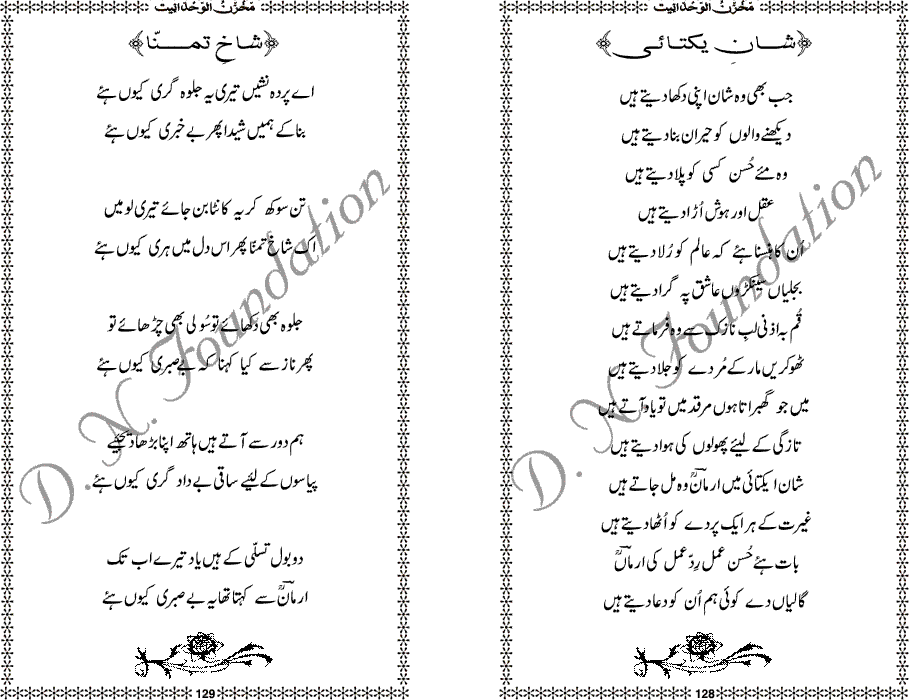 مخزن الوحدانیت
شانِ یکتائی
جب بھی وہ شان اپنی دکھا دیتے ہیں
دیکھنے والوں کو حیران بنا دیتے ہیں
وہ مئے حُسن کسی کو پلا دیتے ہیں
عقل اور ہوش اُڑا دیتے ہیں
اُن کا ہنسنا ہئے کہ عالم کو رُلا دیتے ہیں
بجلیاں سینکڑوں عاشق پہ گرا دیتے ہیں
قُم بہ اذنی لبِ نازک سے وہ فرماتے ہیں
ٹھوکریں مار کے مُردے کو جِلا دیتے ہیں
میں جو گھبراتا ہوں مرقد میں تو یاد آتے ہیں
تازگی کے لیئے پھولوں کی ہوا دیتے ہیں
شان ایکتائی میں ارماںؒ وہ مل جاتے ہیں
غیرت کے ہر ایک پردے کو اُٹھا دیتے ہیں
بات ہئے حُسن عمل ردِّ عمل کی ارماںؒ
گالیاں دے کوئی ہم اُن کو دعا دیتے ہیں
128
مخزن الوحدانیت
شاخِ تمنّا
اے پردہ نشیں تیری یہ جلوہ گری کیوں ہئے
بنا کے ہمیں شیدا پھر بے خبری کیوں ہئے
تن سوکھ کر یہ کانٹا بن جائے تیری لو میں
اک شاخِ تمنّا پھر اس دل میں ہری کیوں ہئے
جلوہ بھی دکھائے تو سُولی بھی چڑھائے تو
پھر ناز سے کیا کہنا کہ بے صبری کیوں ہئے
ہم دور سے آتے ہیں ہاتھ اپنا بڑھا دیجیئے
پیاسوں کے لیئے ساقی بے داد گری کیوں ہئے
دو بول تسلّی کے ہیں یاد تیرے اب تک
ارماںؒ سے کہتا تھا یہ بے صبری کیوں ہئے
129
D. N. Foundation
D. N. Foundation